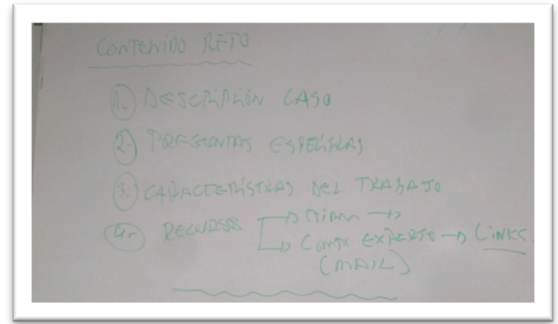 CONTENIDO RETO
1. DESCRIPCIÓN CASO
2. PREGUNTAS ESPECÍFICAS
3. CARACTERÍSTICAS DEL TRABAJO
4. RECURSOS → →
→ EXPERTO → LINKS
(MAIL)